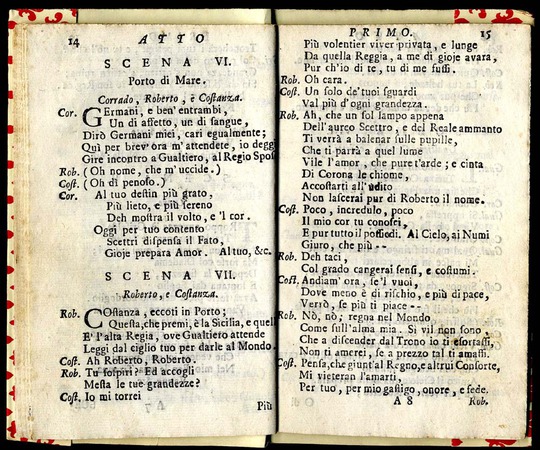 14 ATTO
SCENA VI.
Porto di Mare.
Corrado, Roberto, è Costanza.
Cor. GErmani, e ben' entrambi,
Un di affetto, un di sangue,
Dirò Germani miei, cari egualmente;
Quì per brev'ora m'attendete, io degg
Gire incontro a Gualtiero, al Regio Spos
Rob. (Oh nome, che m'uccide.)
Cost. (Oh dì penoso.)
Cor. Al tuo destin più grato,
Più lieto, e più sereno
Deh mostra il volto, e 'l cor.
Oggi per tuo contento
Scettri dispensa il Fato,
Gioje prepara Amor. Al tuo, &c.
SCENA VII.
Roberto, e Costanza.
Rob. COstanza, eccoti in Porto;
Questa, che premi, è la Sicilia, e quell
E' l'alta Regia, ove Gualtiero attende
Leggi dal ciglio tuo per darle al Mondo.
Cost. Ah Roberto, Roberto.
Rob. Tu sospiri? Ed accogli
Mesta le tue grandezze?
Cost. Io mi torrei
Più
PRIMO. 15
Più volentier viver privata, e lunge
Da quella Reggia, a me di gioje avara,
Pur ch'io di te, tu di me fussi.
Rob. Oh cara.
Cost. Un solo de' tuoi sguardi
Val più d'ogni grandezza.
Rob. Ah, che un sol lampo appena
Dell'aureo Scettro, e del Reale ammanto
Ti verrà a balenar sulle pupille,
Che ti parrà a quel lume
Vile l'amor, che pure t'arde; e cinta
Di Corona le chiome,
Accostarti all'udito
Non lascerai pur di Roberto il nome.
Cost. Poco, incredulo, poco
Il mio cor tu conosci,
E pur tutto il possiedi. Al Cielo, ai Numi
Giuro, che più --
Rob. Deh taci,
Col grado cangerai sensi, e costumi.
Cost. Andiam' ora, se 'l vuoi,
Dove meno è di rischio, e più di pace,
Verrò, se più ti piace--
Rob. Nò, nò; regna nel Mondo
Come sull'alma mia. Sì vil non sono,
Che a discender dal Trono io ti esortassi,
Non ti amerei, se a prezzo tal ti amassi.
Cost. Pensa, che giunt'al Regno, e altrui Consorte,
Mi vieteran l'amarti,
Per tuo, per mio gastigo, onore, e fede.
A 8 Rob.